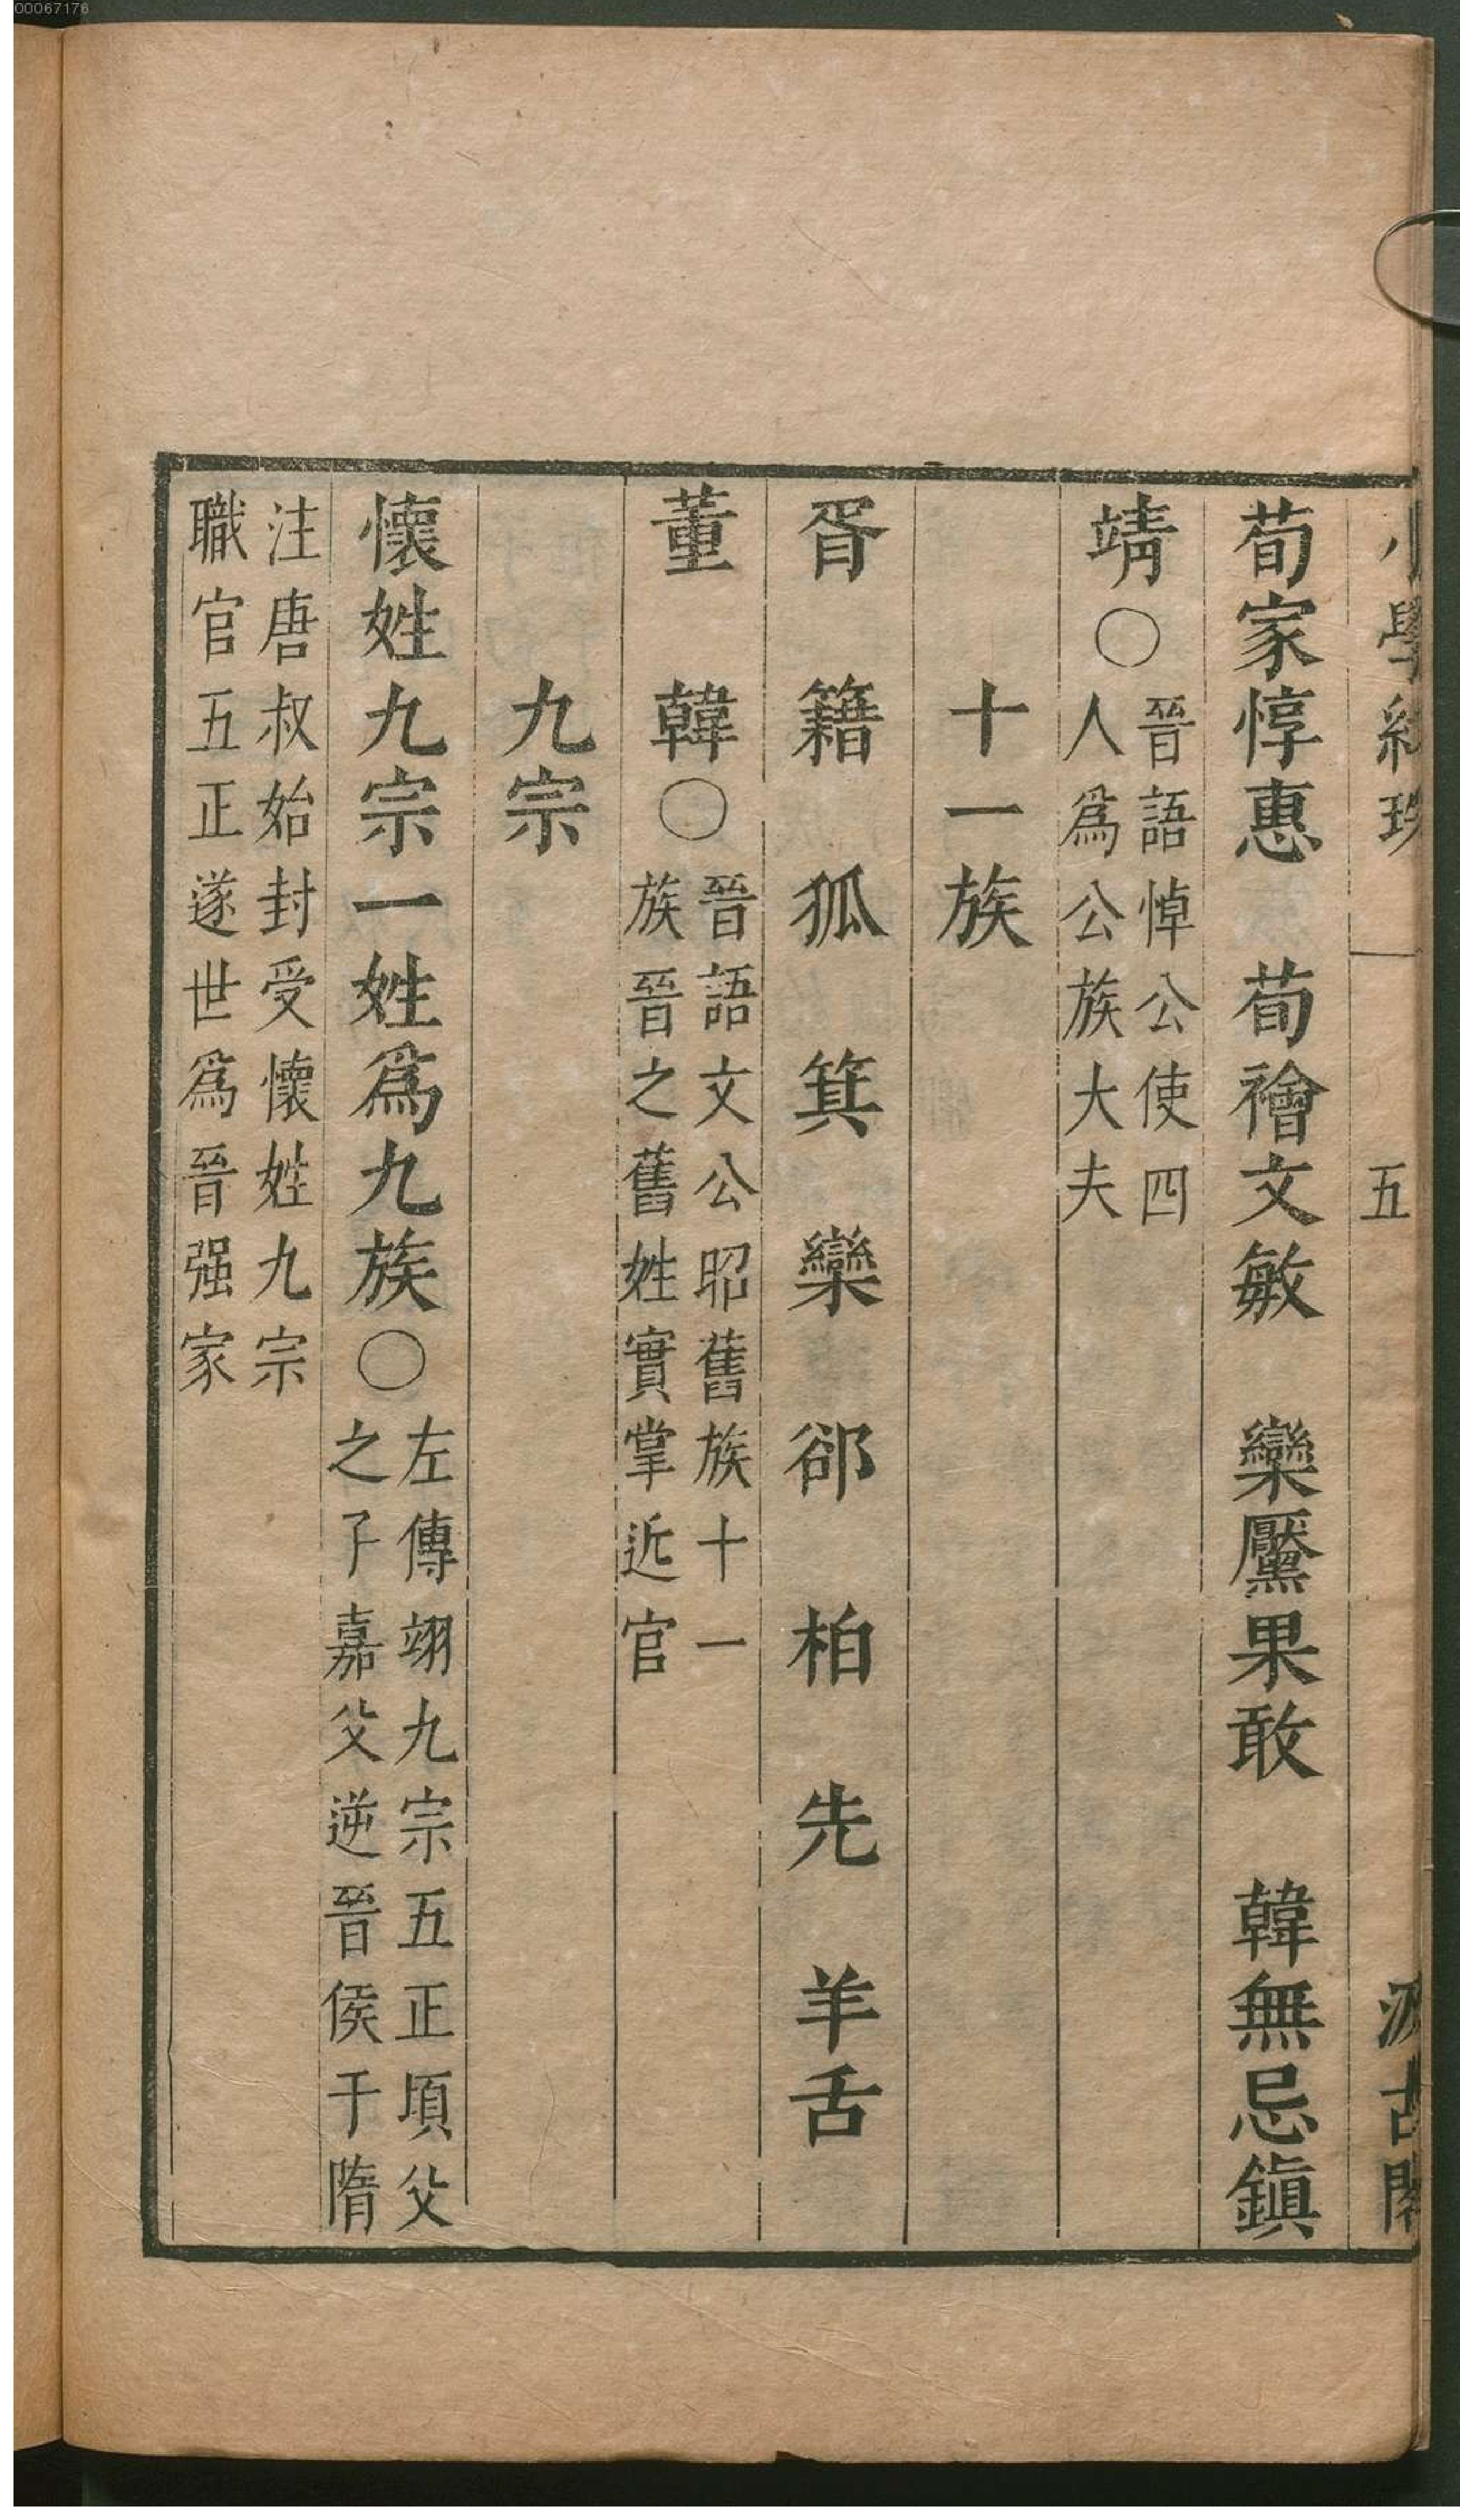 00067176
小學紺珠 五 汲古閣
荀家惇惠 荀襘文敏 欒黶果敢 韓無忌鎭
靖○晉語悼公使四
人爲公族大夫
十一族
胥 籍 狐 箕 欒 郤 柏 先 羊舌
董 韓○晉語文公昭舊族十一
族晉之舊姓實掌近官
九宗
懷姓九宗一姓爲九族○左傳翊九宗五正頃父
之子嘉父逆晉侯于隋
注唐叔始封受懷姓九宗
職官五正遂世爲晉强家